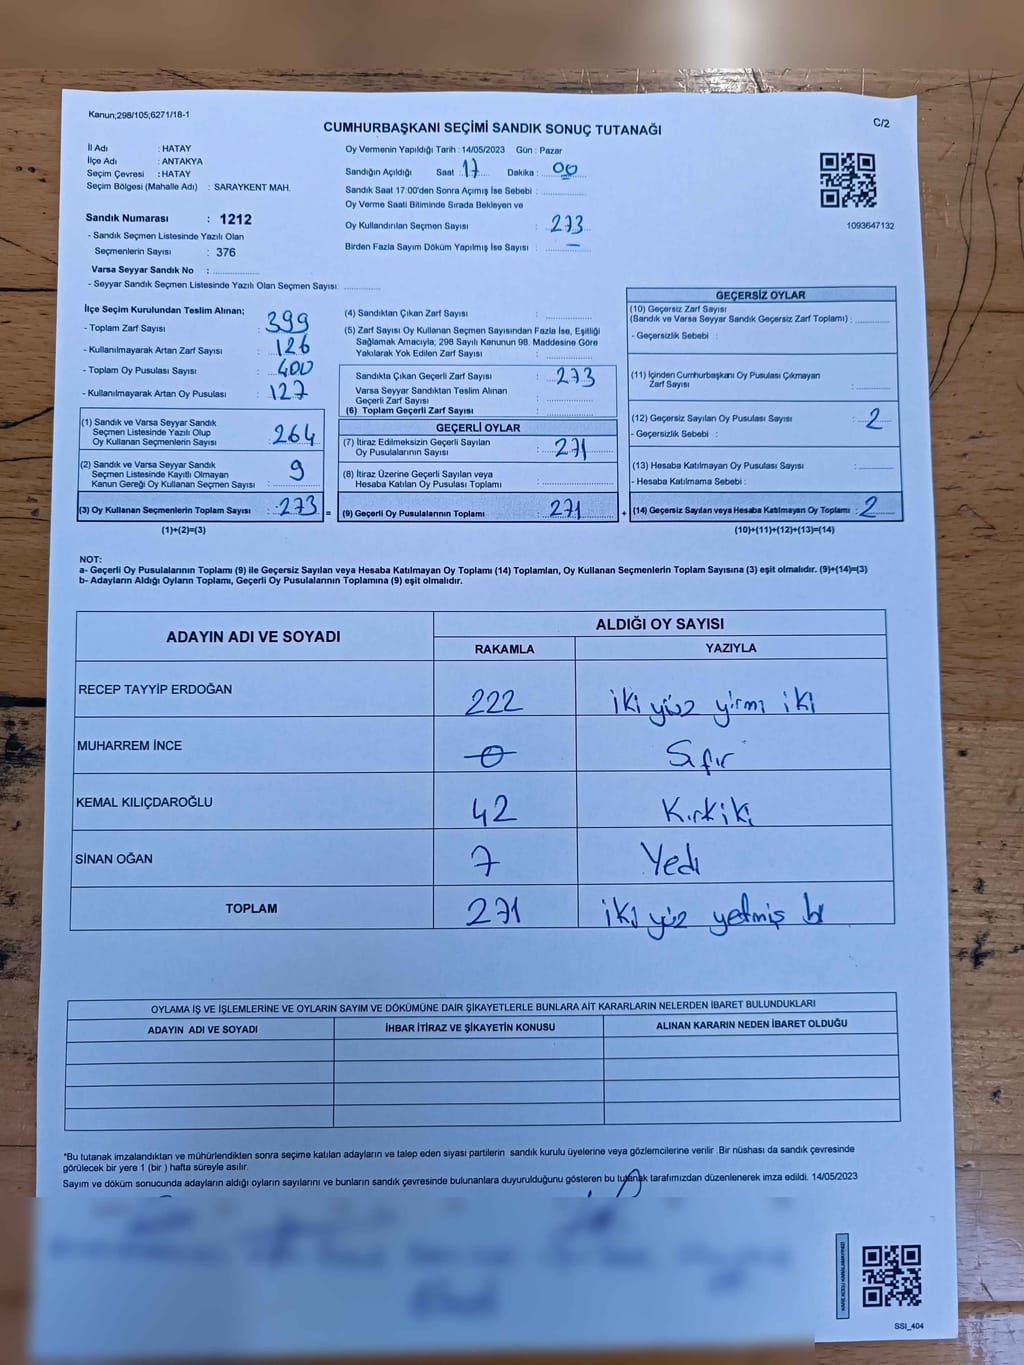 Kanun;298/105;6271/18-1
C/2
CUMHURBAŞKANI SEÇİMİ SANDIK SONUÇ TUTANAĞI
İl Adı : HATAY
İlçe Adı : ANTAKYA
Seçim Çevresi : HATAY
Seçim Bölgesi (Mahalle Adı) : SARAYKENT MAH.
Sandık Numarası : 1212
- Sandık Seçmen Listesinde Yazılı Olan
Seçmenlerin Sayısı : 376
Varsa Seyyar Sandık No :
- Seyyar Sandık Seçmen Listesinde Yazılı Olan Seçmen Sayısı:
Oy Vermenin Yapıldığı Tarih : 14/05/2023 Gün : Pazar
Sandığın Açıldığı Saat 17 Dakika : 00
Sandık Saat 17:00'den Sonra Açımış İse Sebebi :
Oy Verme Saati Bitiminde Sırada Bekleyen ve
Oy Kullandırılan Seçmen Sayısı : 273
Birden Fazla Sayım Döküm Yapılmış İse Sayısı : —
1093647132
İlçe Seçim Kurulundan Teslim Alınan;
- Toplam Zarf Sayısı : 399
- Kullanılmayarak Artan Zarf Sayısı : 126
- Toplam Oy Pusulası Sayısı : 400
- Kullanılmayarak Artan Oy Pusulası : 127
(1) Sandık ve Varsa Seyyar Sandık
Seçmen Listesinde Yazılı Olup
Oy Kullanan Seçmenlerin Sayısı : 264
(2) Sandık ve Varsa Seyyar Sandık
Seçmen Listesinde Kayıtlı Olmayan
Kanun Gereği Oy Kullanan Seçmen Sayısı : 9
(3) Oy Kullanan Seçmenlerin Toplam Sayısı : 273 =
(1)+(2)=(3)
(4) Sandıktan Çıkan Zarf Sayısı :
(5) Zarf Sayısı Oy Kullanan Seçmen Sayısından Fazla İse, Eşitliği
Sağlamak Amacıyla; 298 Sayılı Kanunun 98. Maddesine Göre
Yakılarak Yok Edilen Zarf Sayısı :
Sandıkta Çıkan Geçerli Zarf Sayısı : 273
Varsa Seyyar Sandıktan Teslim Alınan
Geçerli Zarf Sayısı :
(6) Toplam Geçerli Zarf Sayısı :
GEÇERLİ OYLAR
(7) İtiraz Edilmeksizin Geçerli Sayılan
Oy Pusulalarının Sayısı : 271
(8) İtiraz Üzerine Geçerli Sayılan veya
Hesaba Katılan Oy Pusulası Toplamı :
(9) Geçerli Oy Pusulalarının Toplamı : 271 +
GEÇERSİZ OYLAR
(10) Geçersiz Zarf Sayısı
(Sandık ve Varsa Seyyar Sandık Geçersiz Zarf Toplamı) :
- Geçersizlik Sebebi :
(11) İçinden Cumhurbaşkanı Oy Pusulası Çıkmayan
Zarf Sayısı :
(12) Geçersiz Sayılan Oy Pusulası Sayısı : 2
- Geçersizlik Sebebi :
(13) Hesaba Katılmayan Oy Pusulası Sayısı :
- Hesaba Katılmama Sebebi :
(14) Geçersiz Sayılan veya Hesaba Katılmayan Oy Toplamı : 2
(10)+(11)+(12)+(13)=(14)
NOT:
a- Geçerli Oy Pusulalarının Toplamı (9) ile Geçersiz Sayılan veya Hesaba Katılmayan Oy Toplamı (14) Toplamları, Oy Kullanan Seçmenlerin Toplam Sayısına (3) eşit olmalıdır. (9)+(14)=(3)
b- Adayların Aldığı Oyların Toplamı, Geçerli Oy Pusulalarının Toplamına (9) eşit olmalıdır.
ADAYIN ADI VE SOYADI ALDIĞI OY SAYISI
RAKAMLA YAZIYLA
RECEP TAYYİP ERDOĞAN 222 iki yüz yirmi iki
MUHARREM İNCE 0 Sıfır
KEMAL KILIÇDAROĞLU 42 Kırkiki
SİNAN OĞAN 7 Yedi
TOPLAM 271 iki yüz yetmiş bir
OYLAMA İŞ VE İŞLEMLERİNE VE OYLARIN SAYIM VE DÖKÜMÜNE DAİR ŞİKAYETLERLE BUNLARA AİT KARARLARIN NELERDEN İBARET BULUNDUKLARI
ADAYIN ADI VE SOYADI İHBAR İTİRAZ VE ŞİKAYETİN KONUSU ALINAN KARARIN NEDEN İBARET OLDUĞU
*Bu tutanak imzalandıktan ve mühürlendikten sonra seçime katılan adayların ve talep eden siyasi partilerin sandık kurulu üyelerine veya gözlemcilerine verilir .Bir nüshası da sandık çevresinde
görülecek bir yere 1 (bir ) hafta süreyle asılır.
Sayım ve döküm sonucunda adayların aldığı oyların sayılarını ve bunların sandık çevresinde bulunanlara duyurulduğunu gösteren bu tutanak tarafımızdan düzenlenerek imza edildi. 14/05/2023
SSI_404